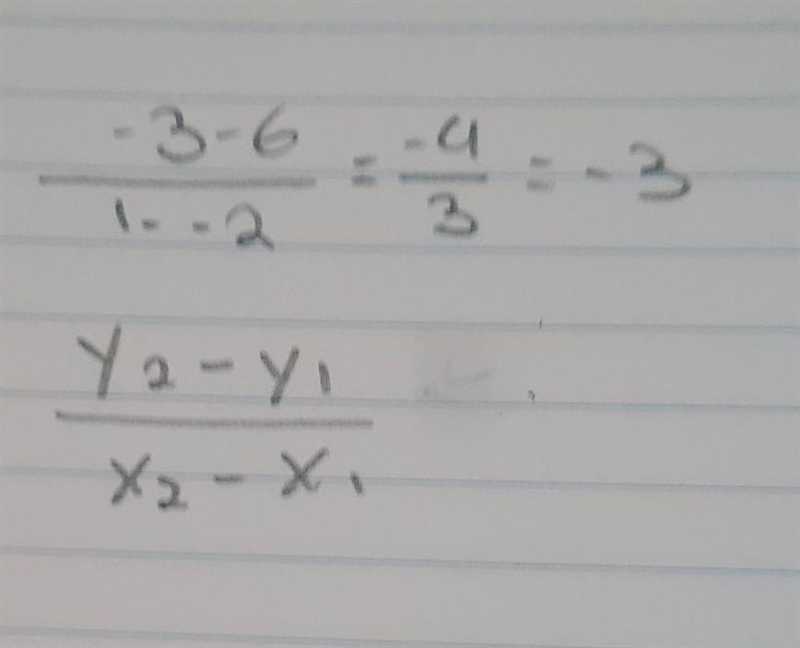 -3-6/1--2 = -9/3 = -3
y2-y1/x2-x1